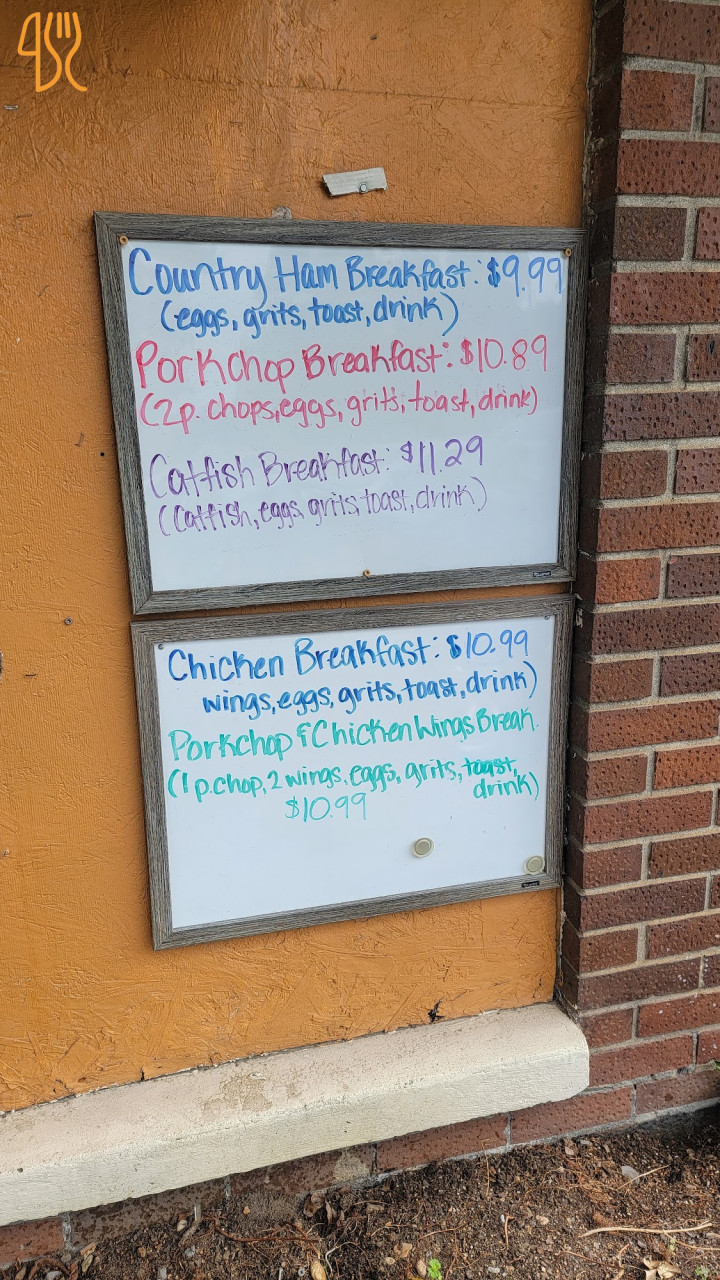 Country Ham Breakfast: $9.99
(eggs, grits, toast, drink)
Porkchop Breakfast: $10.89
(2p. chops, eggs, grits, toast, drink)
Catfish Breakfast: $11.29
(Catfish, eggs, grits, toast, drink)
Chicken Breakfast: $10.99
wings, eggs, grits, toast, drink)
Porkchop & Chicken Wings Break.
(1 p.chop, 2 wings, eggs, grits, toast,
drink)
$10.99